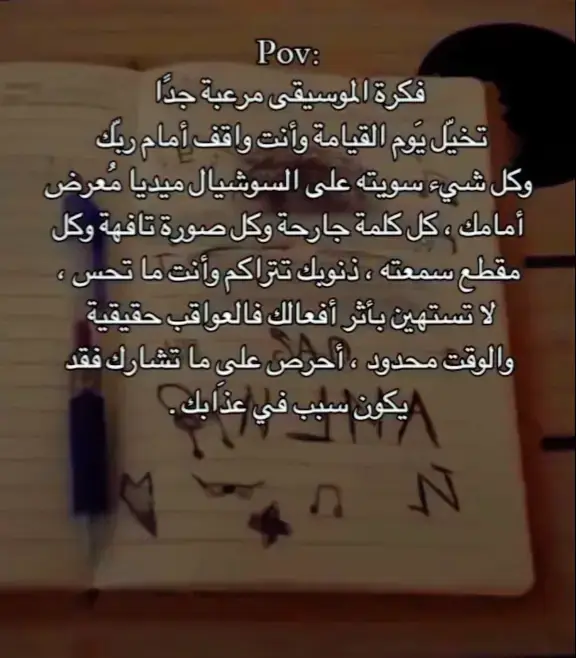 Pov:
فكرة الموسيقى مرعبة جدًا
تخيّل يَوم القيامة وأنت واقف أمام ربّك
وكل شيء سويته على السوشيال ميديا مُعرض
أمامك ، كل كلمة جارحة وكل صورة تافهة وكل
مقطع سمعته ، ذنوبك تتراكم وأنت ما تحس ،
لا تستهين بأثر أفعالك فالعواقب حقيقية
والوقت محدود ، أحرص على ما تشارك فقد
يكون سبب في عذَابك .